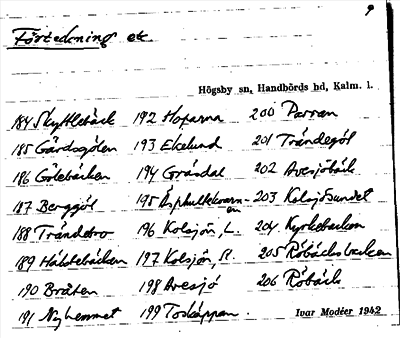 9
Förteckning etc.
Högsby sn, Handbörds hd, Kalm. l.
184 Skyttlebäck 192 Hoparna 200 Parran
185 Gårdsgölen 193 Ekelund 201 Trändegöl
186 Gölebäcken 194 Gråsdal 202 Avesjöbäck
187 Berggöl 195 Äsphultekvarn- 203 Kolsjösundet
en
188 Trändebro 196 Kolsjön, L. 204 Kyrkebacken
189 197 Kolsjön, St. 205 Röbäcksbacken
190 Bråten 198 Avesjö 206 Röbäck
191 Nyhemmet 199 Toskäppan. Ivar Modéer 1942